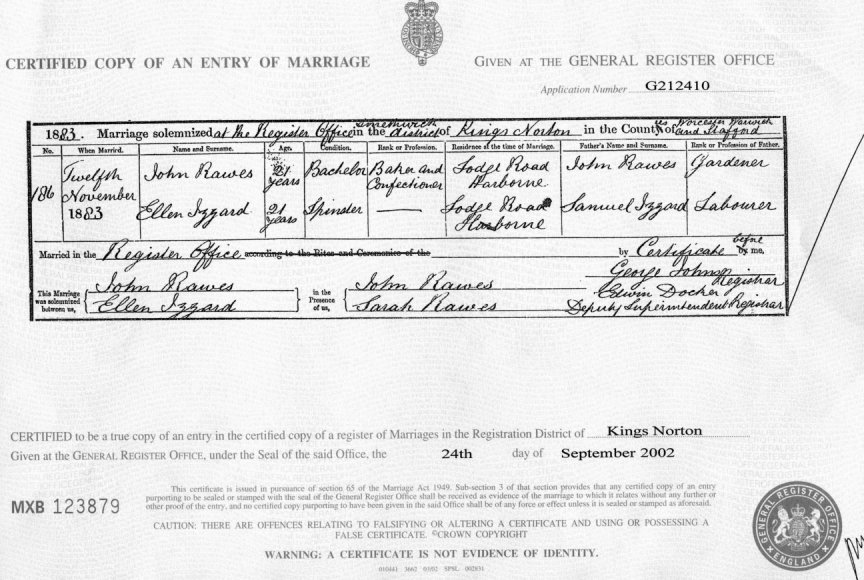 CERTIFIED COPY OF AN ENTRY OF MARRIAGE
GIVEN AT THE GENERAL REGISTER OFFICE
Application Number G212410
1883. Marriage solemnized at the Register Office in the district of Kings Norton in the Counties of Worcester Warwick and Stafford
No. When Married. Name and Surname. Age. Condition. Rank or Profession. Residence at the time of Marriage. Father's Name and Surname. Rank or Profession of Father.
186 Twelfth November 1883 John Rawes 21 years Bachelor Baker and Confectioner Lodge Road Harborne John Rawes Gardener
Ellen Izzard 21 years Spinster — Lodge Road Harborne Samuel Izzard Labourer
Married in the Register Office according to the Rites and Ceremonies of the by Certificate before by me,
This Marriage was solemnized between us, John Rawes Ellen Izzard in the Presence of us, John Rawes Sarah Rawes
George Johnson Registrar
Edwin Docker
Deputy Superintendent Registrar
CERTIFIED to be a true copy of an entry in the certified copy of a register of Marriages in the Registration District of Kings Norton
Given at the GENERAL REGISTER OFFICE, under the Seal of the said Office, the 24th day of September 2002
MXB 123879
This certificate is issued in pursuance of section 65 of the Marriage Act 1949. Sub-section 3 of that section provides that any certified copy of an entry
purporting to be sealed or stamped with the seal of the General Register Office shall be received as evidence of the marriage to which it relates without any further or
other proof of the entry, and no certified copy purporting to have been given in the said Office shall be of any force or effect unless it is sealed or stamped as aforesaid.
CAUTION: THERE ARE OFFENCES RELATING TO FALSIFYING OR ALTERING A CERTIFICATE AND USING OR POSSESSING A
FALSE CERTIFICATE. ©CROWN COPYRIGHT
WARNING: A CERTIFICATE IS NOT EVIDENCE OF IDENTITY.
010441 3662 03/02 SPSL 002831
GENERAL REGISTER OFFICE
ENGLAND